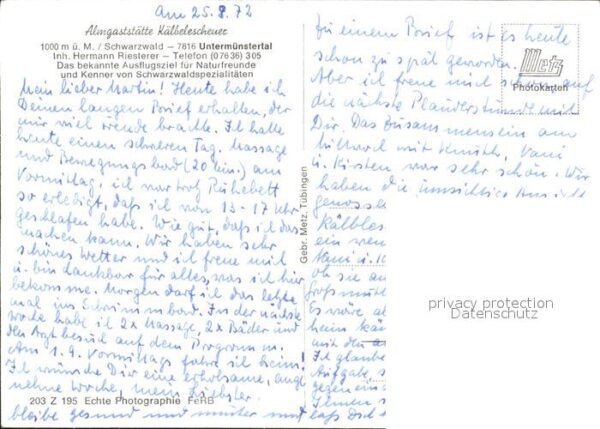 Am 25.8.72
Almgaststätte Kälbelescheuer
1000 m ü. M. / Schwarzwald — 7816 Untermünstertal
Inh. Hermann Riesterer — Telefon (07636) 305
Das bekannte Ausflugsziel für Naturfreunde
und Kenner von Schwarzwaldspezialitäten
Mein lieber Martin! Heute habe ich
Deinen langen Brief erhalten, der
mir viel Freude brachte. Ich hatte
heute einen schweren Tag. Massage
und Bewegungsbad (20 Min.) am
Vormittag, ich war trotz Ruhebett
so erledigt, daß ich von 13-17 Uhr
geschlafen habe. Wie gut, daß ich das
machen kann. Wir haben sehr
schönes Wetter und ich freue mich
u. bin dankbar für alles, was ich hier
bekomme. Morgen darf ich das letzte
mal ins Schwimmbad. In der nächsten
Woche habe ich 2x Massage, 2x Bäder und
den Arztbesuch auf dem Programm.
Am 1.9. Vormittags fahre ich heim!
Ich wünsche Dir eine erholsame, ange
nehme Woche, mein Liebster.
203 Z 195 Echte Photographie FeRB
bleibe gesund und munter und
Gebr. Metz, Tübingen
Zu einem Brief ist es heute
schon zu spät geworden.
Aber ich freue mich schon auf
die nächste Plauderstunde mit
Dir. Das Zusammensein am
Mittwoch mit
u. Kirsten, war sehr schön. Wir
haben die umsichtige
genossen
Kälbles
ein
ob sie
Großmutt
Es wäre
heim
mit den
Ich glaube
Aufgabe,
gegen ein
laß Dich
Metz
Photokarten
privacy protection
Datenschutz